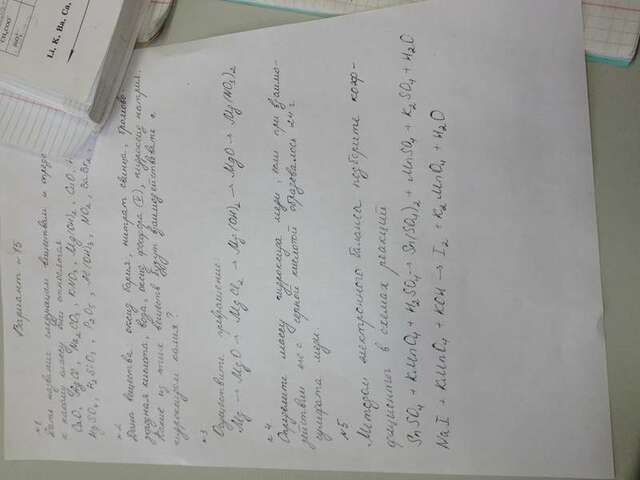 Вариант №15
№1
Дать названия следующим веществам и опреде
к какому классу они относятся
CaO, AgCl, Na₂CO₃, KNO₃, Mg(OH)₂, CuO,
MgSO₄, H₂SiO₃, P₂O₅, Al(OH)₃, NO₂, BaBr₂,
№2
Даны вещества оксид бария, нитрат свинца, бромово-
дородная кислота, вода, оксид фосфора (V), гидроксид натрия.
Какие из этих веществ будут взаимодействовать с
гидроксидом калия?
№3
Осуществите превращение
Mg → MgO → MgCl₂ → Mg(OH)₂ → MgO → Mg(NO₃)₂
№4
Определите массу гидроксида меди, если при взаимо-
действии его с серной кислотой образовалось 24 г
сульфата меди.
№5
Методом электронного баланса подберите коэф-
фициенты в схемах реакций
SnSO₄ + KMnO₄ + H₂SO₄ → Sn(SO₄)₂ + MnSO₄ + K₂SO₄ + H₂O
NaI + KMnO₄ + KOH → I₂ + K₂MnO₄ + H₂O
CH₃COO⁻
Li, K, Ba, Ca,